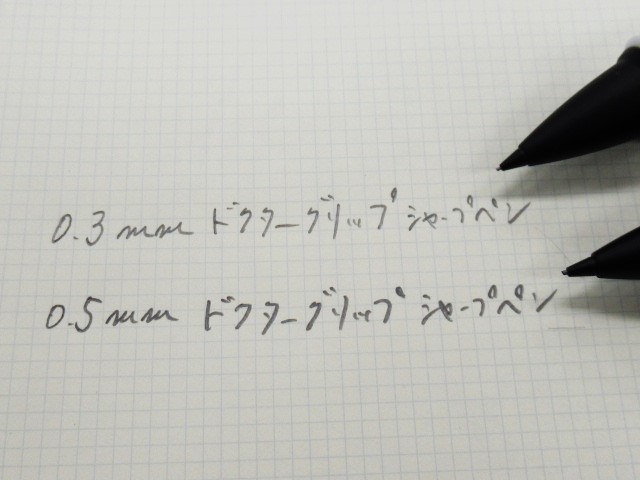 0.3mm ドクターグリップ シャープペン
0.5mm ドクターグリップ シャープペン